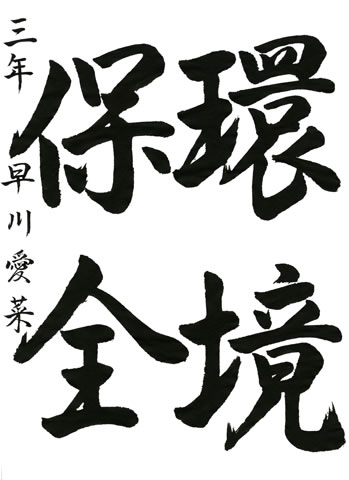 環境
保全
三年 早川愛菜